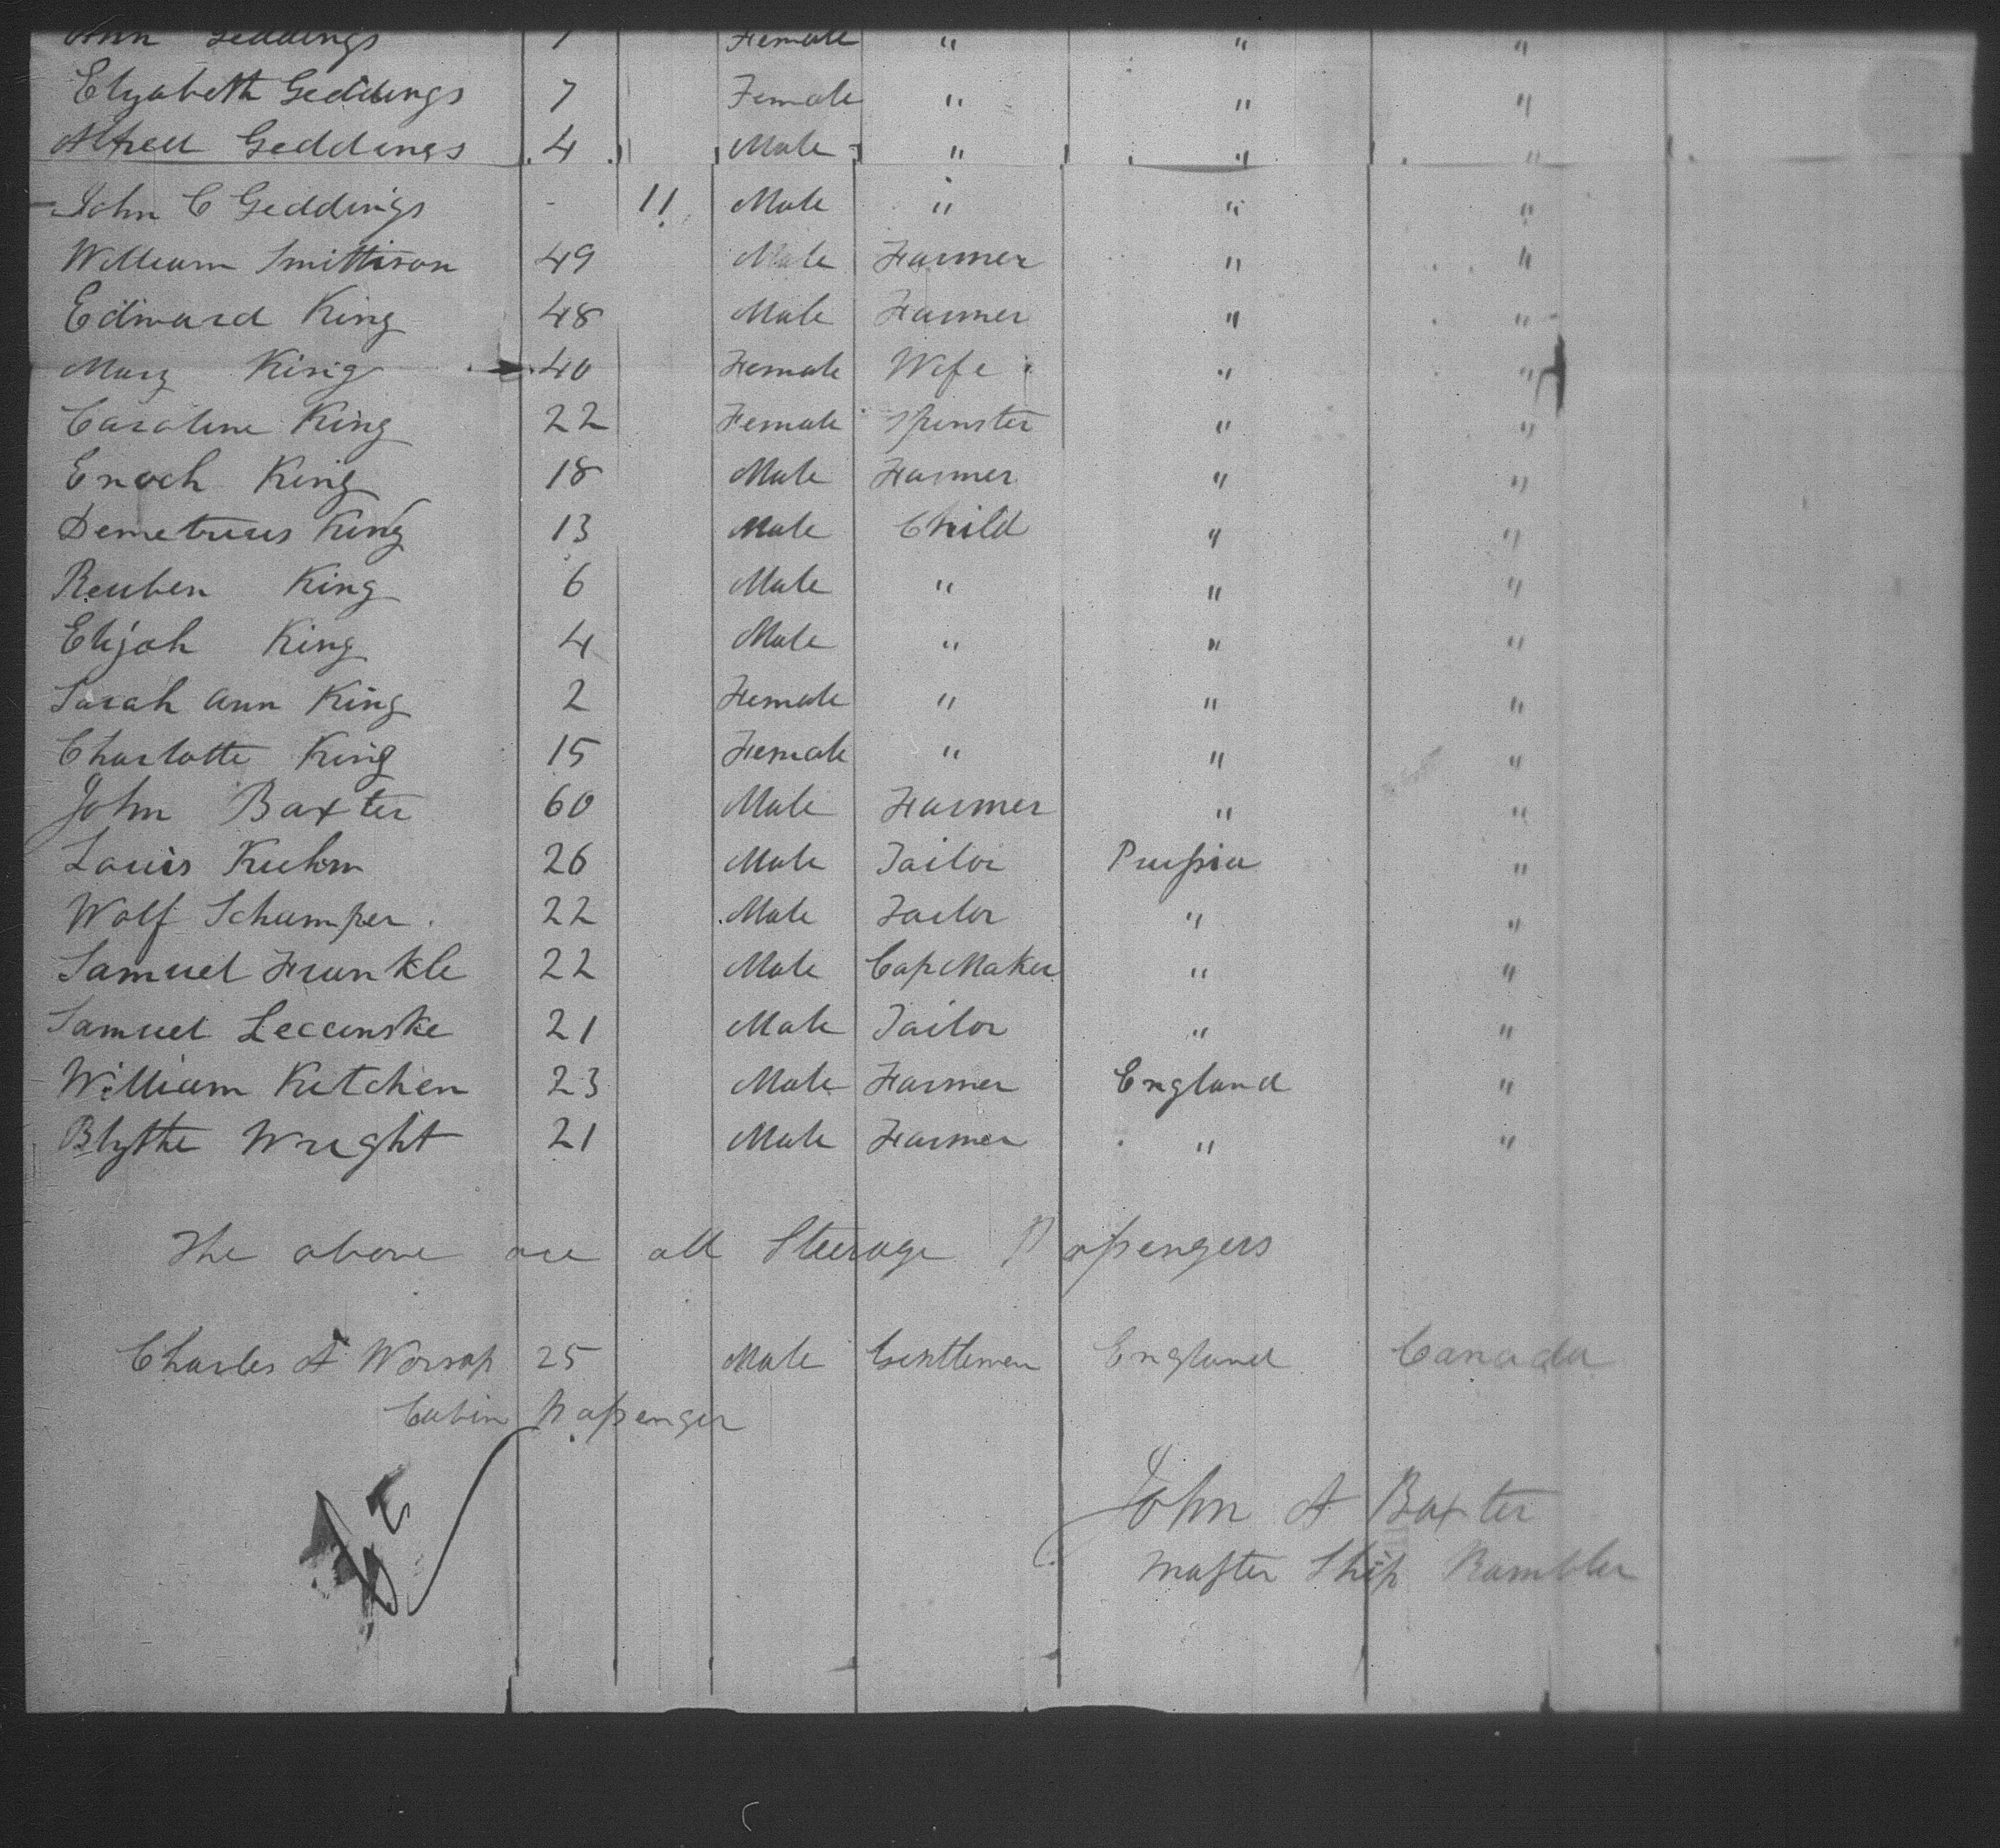 Ann Geddings Female " " "
Elizabeth Geddings 7 Female " " "
Alfred Geddings 4 Male " " "
John C Geddings - 11 Male " " "
William Smittison 49 Male Farmer " "
Edward King 48 Male Farmer " "
Mary King 40 Female Wife " "
Caroline King 22 Female Spinster " "
Enoch King 18 Male Farmer " "
Demetrius King 13 Male Child " "
Reuben King 6 Male " " "
Elijah King 4 Male " " "
Sarah Ann King 2 Female " " "
Charlotte King 15 Female " " "
John Baxter 60 Male Farmer " "
Louis Kuhm 26 Male Tailor Prussia "
Wolf Schumper 22 Male Tailor " "
Samuel Frunkle 22 Male Cap Maker " "
Samuel Leccinske 21 Male Tailor " "
William Kitchen 23 Male Farmer England "
Blythe Wright 21 Male Farmer " "
The above are all Steerage Passengers
Charles A Worsop 25 Male Gentleman England Canada
Cabin Passenger
John A Baxter
Master Ship Rambler